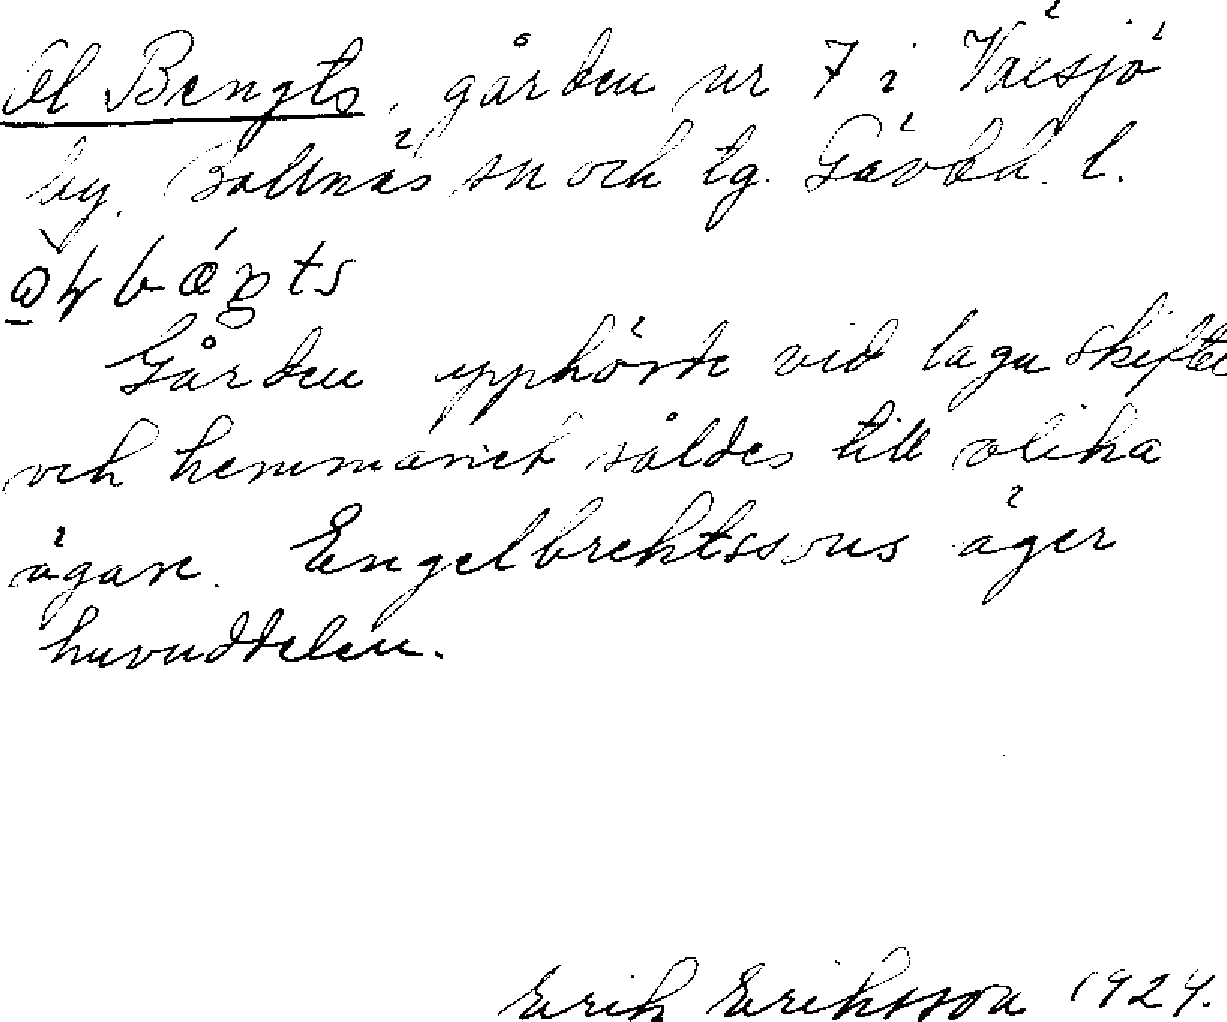 Ol Bengts, gården nr 7 i Växsjö
by. Bollnäs sn och tg. Gävlab. l.
Gården upphörde vid laga skifte
och hemmanet såldes till olika
ägare. Engelbrektssons äger
huvuddelen.
Erik Eriksson 1924.